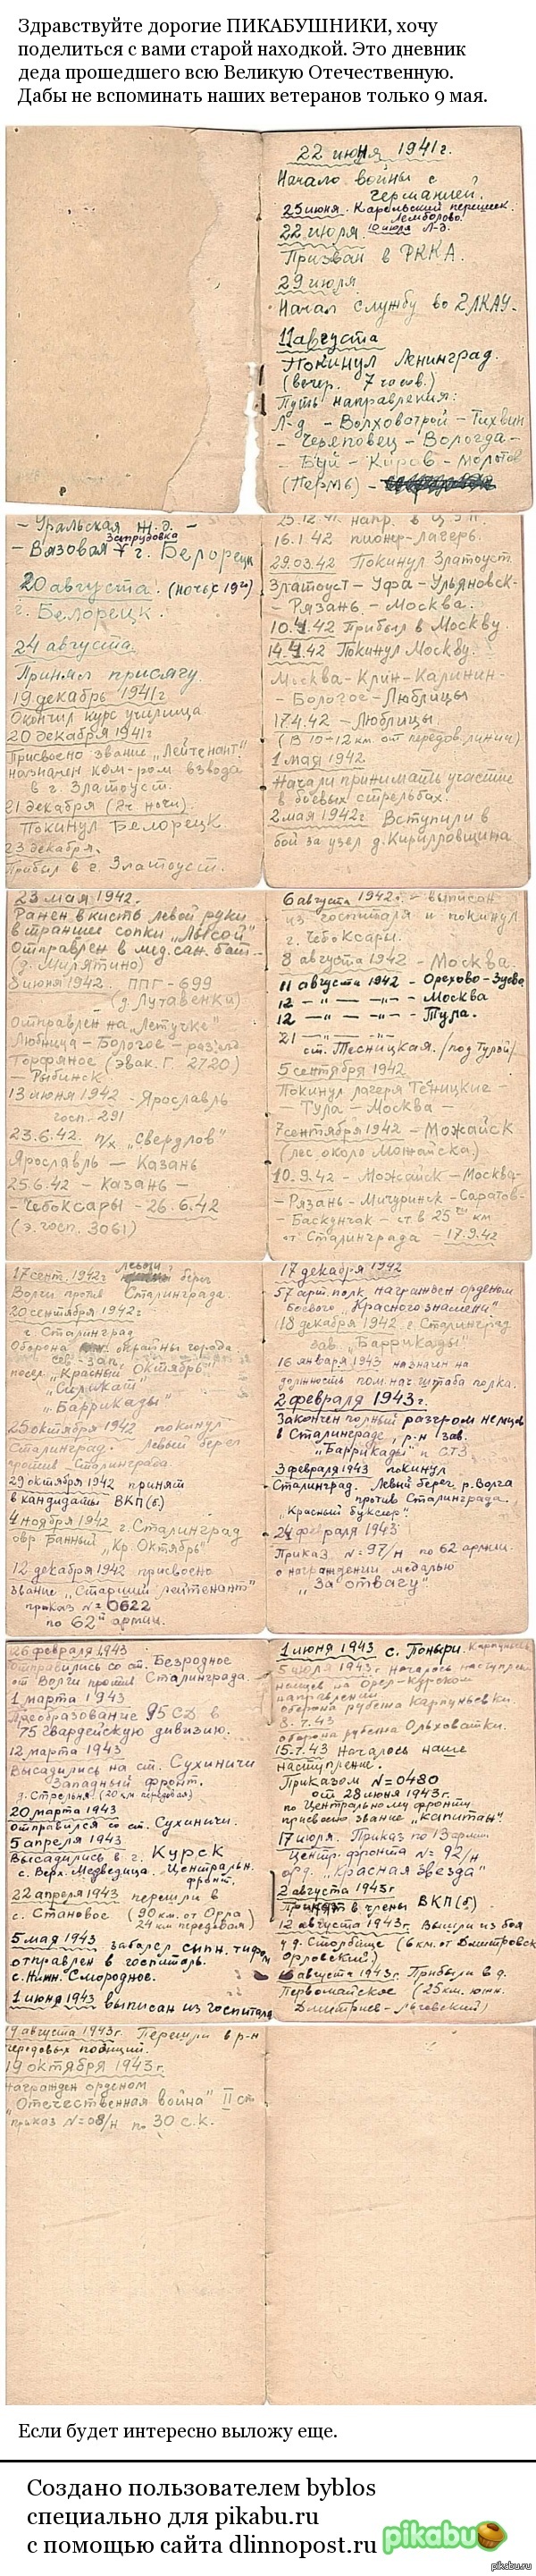 Здравствуйте дорогие ПИКАБУШНИКИ, хочу
поделиться с вами старой находкой. Это дневник
деда прошедшего всю Великую Отечественную.
Дабы не вспоминать наших ветеранов только 9 мая.
22 июня 1941г.
Начало войны с
Германией.
25 июня. Карельский перешеек.
Лемболово.
22 июля. 10 июля Л-д.
Призван в РККА.
29 июля
Начал службу во 2ЛКАУ.
11 августа
Покинул Ленинград.
(вечер. 7 часов.)
Путь направления:
Л-д - Волховстрой - Тихвин
- Череповец - Вологда -
- Буй - Киров - Молотов
(Пермь) -
- Уральская ж.д. -
Запрудовка
- Вязовая г. Белорецк
20 августа. (ночь с 19го)
г. Белорецк.
24 августа.
Принял присягу.
19 декабрь 1941г
Окончил курс училища
20 декабря 1941г
Присвоено звание „Лейтенант"
назначен ком-ром взвода
в г. Златоуст.
21 декабря (2ч. ночи).
Покинул Белорецк.
23 декабря.
Прибыл в г. Златоуст.
16.1.42 пионер-лагерь.
29.03.42 Покинул Златоуст
Златоуст - Уфа - Ульяновск-
- Рязань - Москва.
10.4.42 Прибыл в Москву.
14.4.42 Покинул Москву.
Москва - Клин - Калинин-
- Бологое - Люблицы
17.4.42 - Люблицы
(В 10-12 км. от передов. линии)
1 мая 1942
Начали принимать участие
в боевых стрельбах.
2 мая 1942г Вступили в
бой за узел д. Кирилловщина
23 мая 1942.
Ранен в кисть левой руки
в траншее сопки „Лысой"
Отправлен в мед. сан. бат.
(д. Мирятино)
8 июня 1942. ППГ - 699
(д. Лутавенки)
Отправлен на „Летучке"
Любница - Бологое - разъезд
Торфяное (эвак. Г. 2720)
- Рыбинск
13 июня 1942 - Ярославль
госп. 291
23.6.42. п/х „Свердлов"
Ярославль - Казань
25.6.42 - Казань -
- Чебоксары - 26.6.42
(э. госп. 3061)
6 августа 1942г. - выписан
из госпиталя и покинул
г. Чебоксары.
8 августа 1942 - Москва
11 августа 1942 - Орехово-Зуево
12 -"- -"- - Москва
12 -"- -"- - Тула.
21 -"- -"-
ст. Тесницкая. /под Тулой/
5 сентября 1942
Покинул лагеря Тесницкие -
- Тула - Москва -
7 сентября 1942 - Можайск
(лес около Можайска)
10.9.42 - Можайск - Москва-
- Рязань - Мичуринск - Саратов-
- Баскунчак - ст в 25ти км
от Сталинграда - 17.9.42
17 сент. 1942г Левый берег
Волги против Сталинграда
20 сентября 1942г
г. Сталинград
Оборона сев-зап. окраины города
посел. „Красный Октябрь"
„Силикат"
„Баррикады"
25 октября 1942 покинул
Сталинград. Левый берег
против Сталинграда.
29 октября 1942 принят
в кандидаты ВКП(б)
4 ноября 1942 г. Сталинград
овр. Банный „Кр. Октябрь"
12 декабря 1942 присвоено
звание „Старший лейтенант"
приказ №0622
по 62й армии.
17 декабря 1942
57 арт. полк награжден орденом
Боевого „Красного знамени"
18 декабря 1942 г. Сталинград
зав. „Баррикады"
16 января 1943 назначен на
должность пом. нач. штаба полка.
2 февраля 1943г.
Закончен полный разгром немцев
в Сталинграде, р-н зав.
„Баррикады" и СТЗ
3 февраля 1943 покинул
Сталинград. Левый берег р. Волга
против Сталинграда.
„Красный буксир"
24 февраля 1943
Приказ №97/н по 62 армии.
о награждении медалью
„За отвагу".
26 февраля 1943
Отправились со ст. Безродное
от Волги против Сталинграда.
1 марта 1943
Преобразование 95 СД в
75 гвардейскую дивизию.
12 марта 1943
Высадились на ст. Сухиничи
Западный фронт.
д. Стрельня (20 км передовая)
20 марта 1943
отправился со ст. Сухиничи.
5 апреля 1943
Высадились в г. Курск
с. Верх. Медведица. Центральн.
фронт.
22 апреля 1943 перешли в
с. Становое (90 км. от Орла
24 км. передовая)
5 мая 1943 заболел сыпн. тифом
отправлен в госпиталь.
с. Нижн. Смородное.
1 июня 1943 выписан из госпиталя
1 июня 1943 с. Поныри.
5 июля 1943г. началось наступление
немцев на Орел-Курском
направлении
оборона рубежа Карпуньевки.
8.7.43
оборона рубежа Ольховатки.
15.7.43 Началось наше
наступление.
Приказом №0480
от 28 июня 1943г.
по Центральному фронту
присвоено звание „капитан".
17 июля. Приказ по 13 армии
Центр. фронта №92/н
орд. „Красная звезда"
2 августа 1943г
Принят в члены ВКП(б)
12 августа 1943г. Вышли из боя
у д. Столбище (6 км. от Дмитровск
Орловский)
августа 1943г. Прибыли в д.
Первомайское (25 км. южн.
Дмитриев-Льговский)
августа 1943г. Перешли в р-н
передовых позиций.
19 октября 1943г.
Награжден орденом
„Отечественная война" II ст
приказ №08/н по 30 с.к.
Если будет интересно выложу еще.
Создано пользователем byblos
специально для pikabu.ru
с помощью сайта dlinnopost.ru pikabu
pikabu.ru